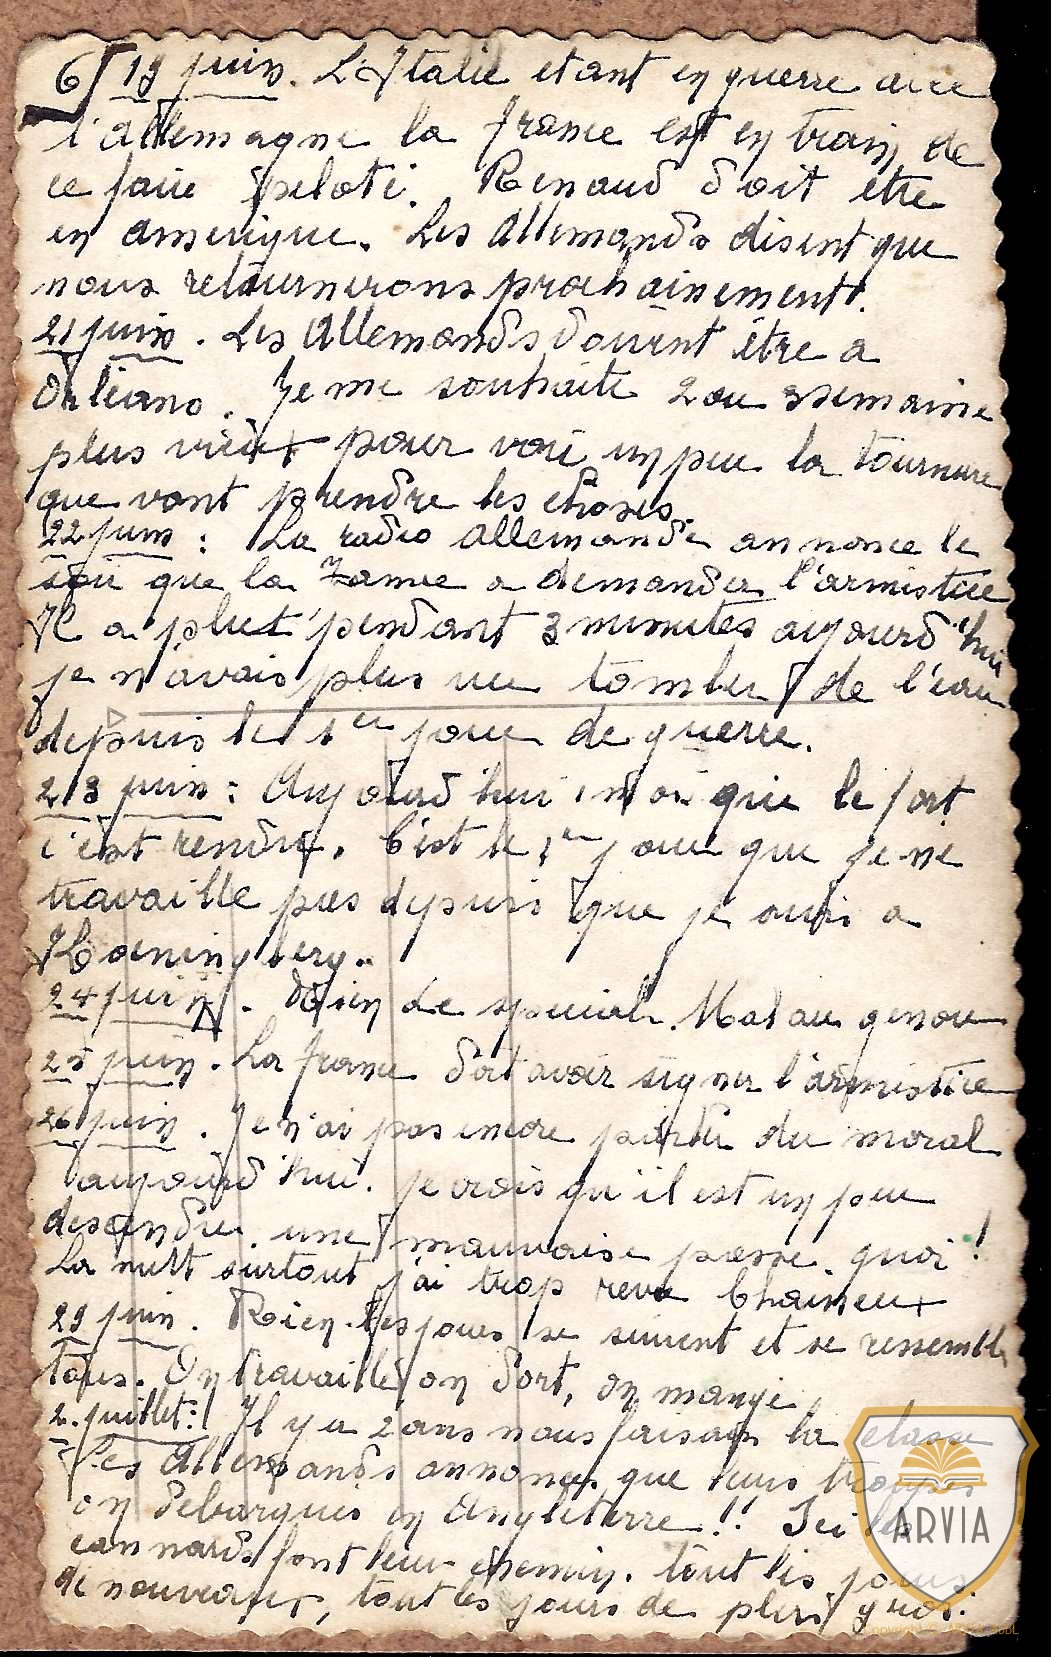 6) 19 juin. L'Italie etant en guerre avec
l'Allemagne la france est en train de
ce faire peloté. Renaud doit être
en amerique. Les Allemands disent que
nous retournerons prochainement.
21 juin. Les Allemands doivent être a
Orléans. Je me souhaite 2 ou 3 semaine
plus vieux pour voir un peu la tournure
que vont prendre les choses.
22 juin : La radio allemande annonce le
soir que la france a demander l'armistice
Il a plut pendant 3 minutes aujourd'hui
je n'avais plus vu tomber de l'eau
depuis le 1er jour de guerre.
23 juin : Aujourd'hui que le fort
c'est rendu. C'est le 1er jour que je ne
travaille pas depuis que je suis a
24 juin. Rien de special. Mal au genou
25 juin. La france doit avoir signer l'armistice
26 juin. Je n'ai pas encore parler du moral
aujourd'hui. je crois qu'il est un peu
descendu. une mauvaise passe. quoi !
La nuit surtout j'ai trop reve
29 juin. Rien. Les jours se suivent et se ressemble
tous. On travaille, on dort, on mange
2. juillet : Il y a 2 ans nous faisait la classe
Les Allemands annonces que leurs troupes
on debarqués en Angleterre !! Ici les
cannards font leur chemin. tout les jours
de nouveaux, tout les jours de plus gros.
ARVIA